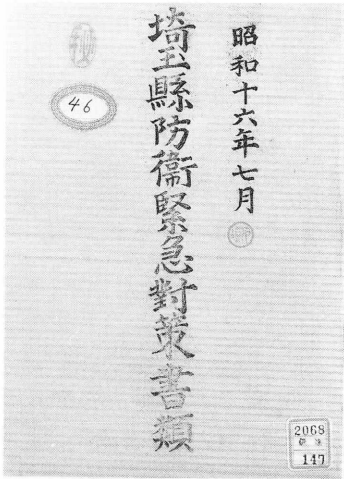 昭和十六年七月
埼玉縣防衞緊急對策書類
秘
46
2068
149